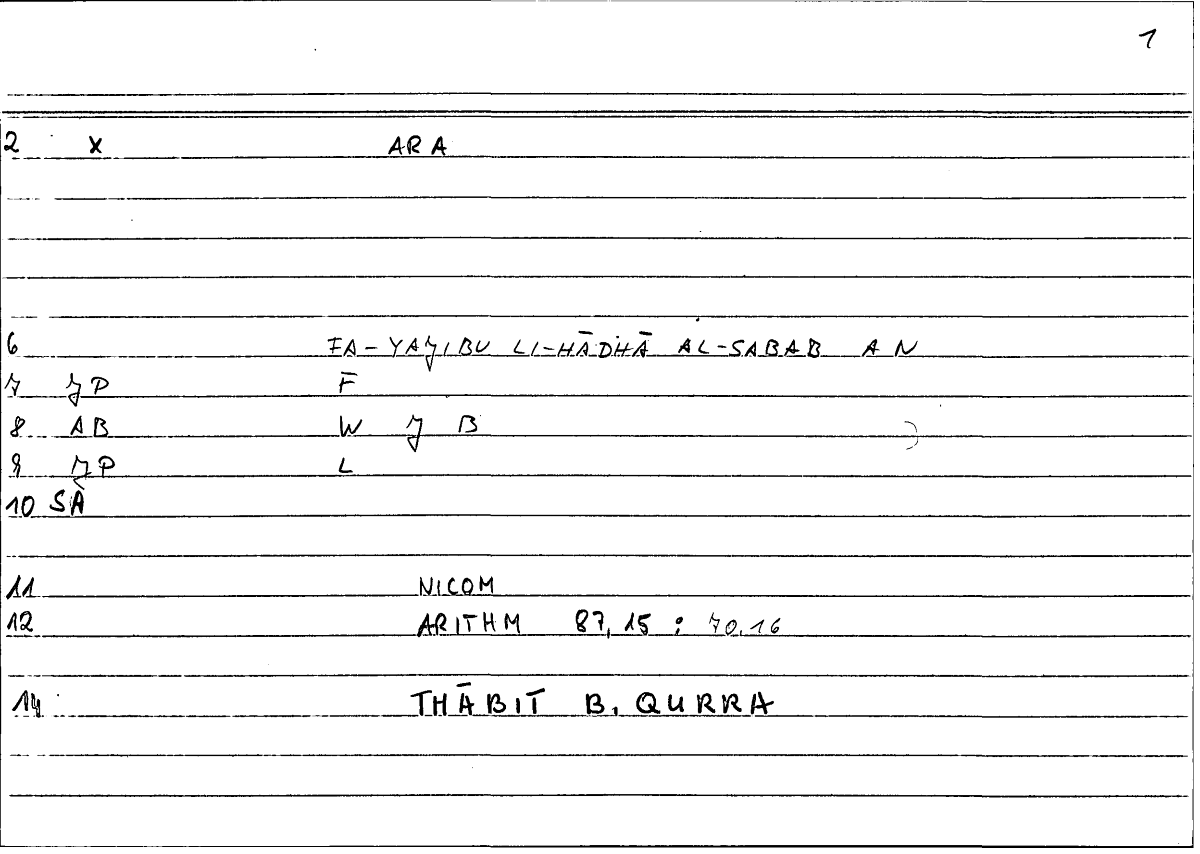 1
2 X ARA
6 FA-YAJIBU LI-HĀDHĀ AL-SABAB AN
7 JP F
8 AB W J B
9 JP L
10 SA
11 NICOM
12 ARITHM 87,15 : 70.16
14 THĀBIT B. QURRA